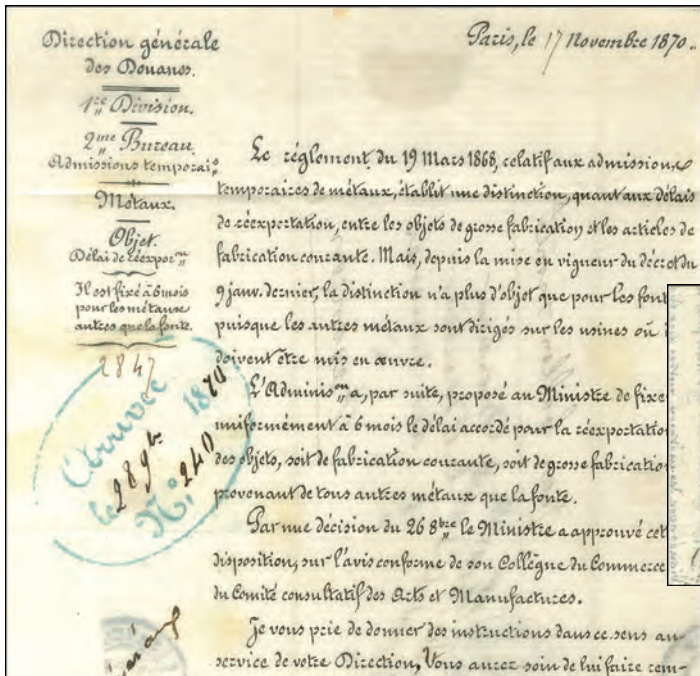 Direction générale
des Douanes.
1re Division.
2me Bureau.
Admissions temporaires
Métaux.
Objet.
Délai de réexporon
Il est fixé à 6 mois
pour les métaux
autres que la fonte.
2847
Arrivée
le 28 9bre 1870
No. 240
Paris, le 17 Novembre 1870.
Le réglement du 19 Mars 1868, relatif aux admissions
temporaires de métaux, établit une distinction, quant aux délais
de réexportation, entre les objets de grosse fabrication et les articles de
fabrication courante. Mais, depuis la mise en vigueur du décret du
9 janv. dernier, la distinction n'a plus d'objet que pour les font
puisque les autres métaux sont dirigés sur les usines où i
doivent être mis en œuvre.
L'Adminison a, par suite, proposé au Ministre de fixe
uniformément à 6 mois le délai accordé pour la réexportatio
des objets, soit de fabrication courante, soit de grosse fabricatio
provenant de tous autres métaux que la fonte.
Par une décision du 26 8bre le Ministre a approuvé cet
disposition, sur l'avis conforme de son Collègue du Commerce
du Comité consultatif des Arts et Manufactures.
Je vous prie de donner des instructions dans ce sens au
service de votre Direction, Vous aurez soin de lui faire rem-